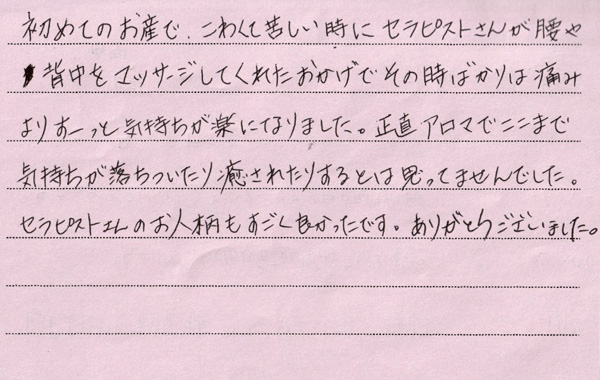 初めてのお産で、こわくて苦しい時にセラピストさんが腰や
背中をマッサージしてくれたおかげでその時ばかりは痛み
よりすーっと気持ちが楽になりました。正直アロマでここまで
気持ちが落ちついたり癒されたりするとは思ってませんでした。
セラピストさんのお人柄もすごく良かったです。ありがとうございました。